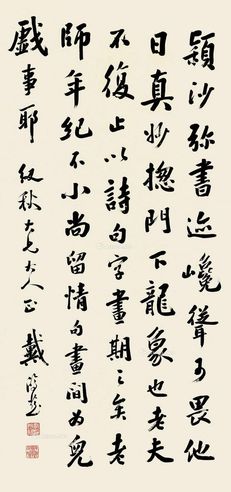 穎沙弥書迹巉聳可畏他
日真妙摠門下龍象也老夫
不復止以詩句字畫期之矣老
師年紀不小尚留情句畫間为兒
戲事耶 秋大兄大人正 戴鴻慈